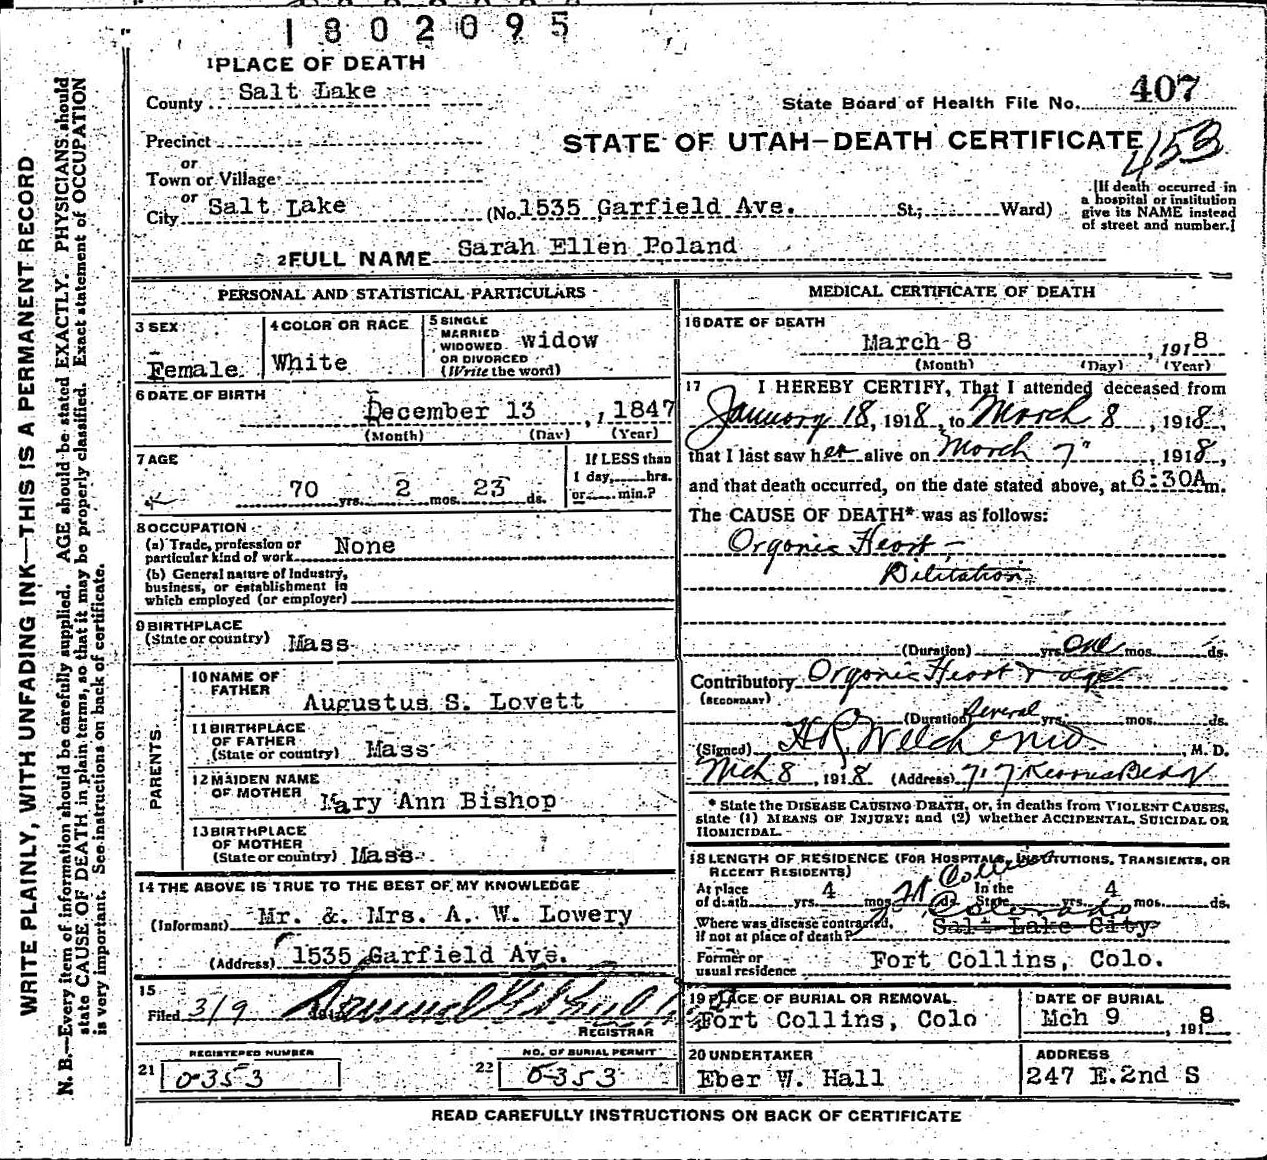 1802095
1 PLACE OF DEATH
County Salt Lake
State Board of Health File No. 407
Precinct
STATE OF UTAH—DEATH CERTIFICATE
453
or
Town or Village
or
City Salt Lake (No. 1535 Garfield Ave. St.; Ward)
[If death occurred in
a hospital or institution
give its NAME instead
of street and number.]
2 FULL NAME Sarah Ellen Poland
WRITE PLAINLY, WITH UNFADING INK—THIS IS A PERMANENT RECORD
N. B.—Every item of information should be carefully supplied. AGE should be stated EXACTLY. PHYSICIANS should
state CAUSE OF DEATH in plain terms, so that it may be properly classified. Exact statement of OCCUPATION
is very important. See instructions on back of certificate.
PERSONAL AND STATISTICAL PARTICULARS
3 SEX
Female
4 COLOR OR RACE
White
5 SINGLE
MARRIED
WIDOWED
OR DIVORCED
(Write the word)
widow
6 DATE OF BIRTH
December 13, 1847
(Month) (Day) (Year)
7 AGE
70 yrs. 2 mos. 23 ds.
If LESS than
1 day, hrs.
or min.?
8 OCCUPATION
(a) Trade, profession or
particular kind of work None
(b) General nature of Industry,
business, or establishment in
which employed (or employer)
9 BIRTHPLACE
(State or country) Mass
PARENTS
10 NAME OF
FATHER
Augustus S. Lovett
11 BIRTHPLACE
OF FATHER
(State or country) Mass
12 MAIDEN NAME
OF MOTHER
Mary Ann Bishop
13 BIRTHPLACE
OF MOTHER
(State or country) Mass
14 THE ABOVE IS TRUE TO THE BEST OF MY KNOWLEDGE
(Informant) Mr. & Mrs. A. W. Lowery
(Address) 1535 Garfield Ave.
15
Filed 3/9
REGISTRAR
REGISTERED NUMBER
21 0353
NO. OF BURIAL PERMIT
22 0353
MEDICAL CERTIFICATE OF DEATH
16 DATE OF DEATH
March 8, 1918
(Month) (Day) (Year)
17 I HEREBY CERTIFY, That I attended deceased from
January 18, 1918, to March 8, 1918,
that I last saw her alive on March 7", 1918,
and that death occurred, on the date stated above, at 6:30A m.
The CAUSE OF DEATH* was as follows:
Organic Heart -
Dilitation
(Duration) yrs. one mos. ds.
Contributory Organic Heart & age
(SECONDARY)
(Duration) Several yrs. mos. ds.
(Signed) H.P. Welch M.D., M. D.
Mch 8, 1918 (Address) 717
* State the DISEASE CAUSING DEATH, or, in deaths from VIOLENT CAUSES,
state (1) MEANS OF INJURY; and (2) whether ACCIDENTAL, SUICIDAL OR
HOMICIDAL.
18 LENGTH OF RESIDENCE (FOR HOSPITALS, INSTITUTIONS, TRANSIENTS, OR
RECENT RESIDENTS)
At place
of death yrs. 4 mos. ds.
In the
State yrs. 4 mos. ds.
Ft Collins
Colorado
Where was disease contracted,
if not at place of death? Salt Lake City
Former or
usual residence Fort Collins, Colo.
19 PLACE OF BURIAL OR REMOVAL
Fort Collins, Colo
DATE OF BURIAL
Mch 9, 1918
20 UNDERTAKER
Eber W. Hall
ADDRESS
247 E. 2nd S
READ CAREFULLY INSTRUCTIONS ON BACK OF CERTIFICATE